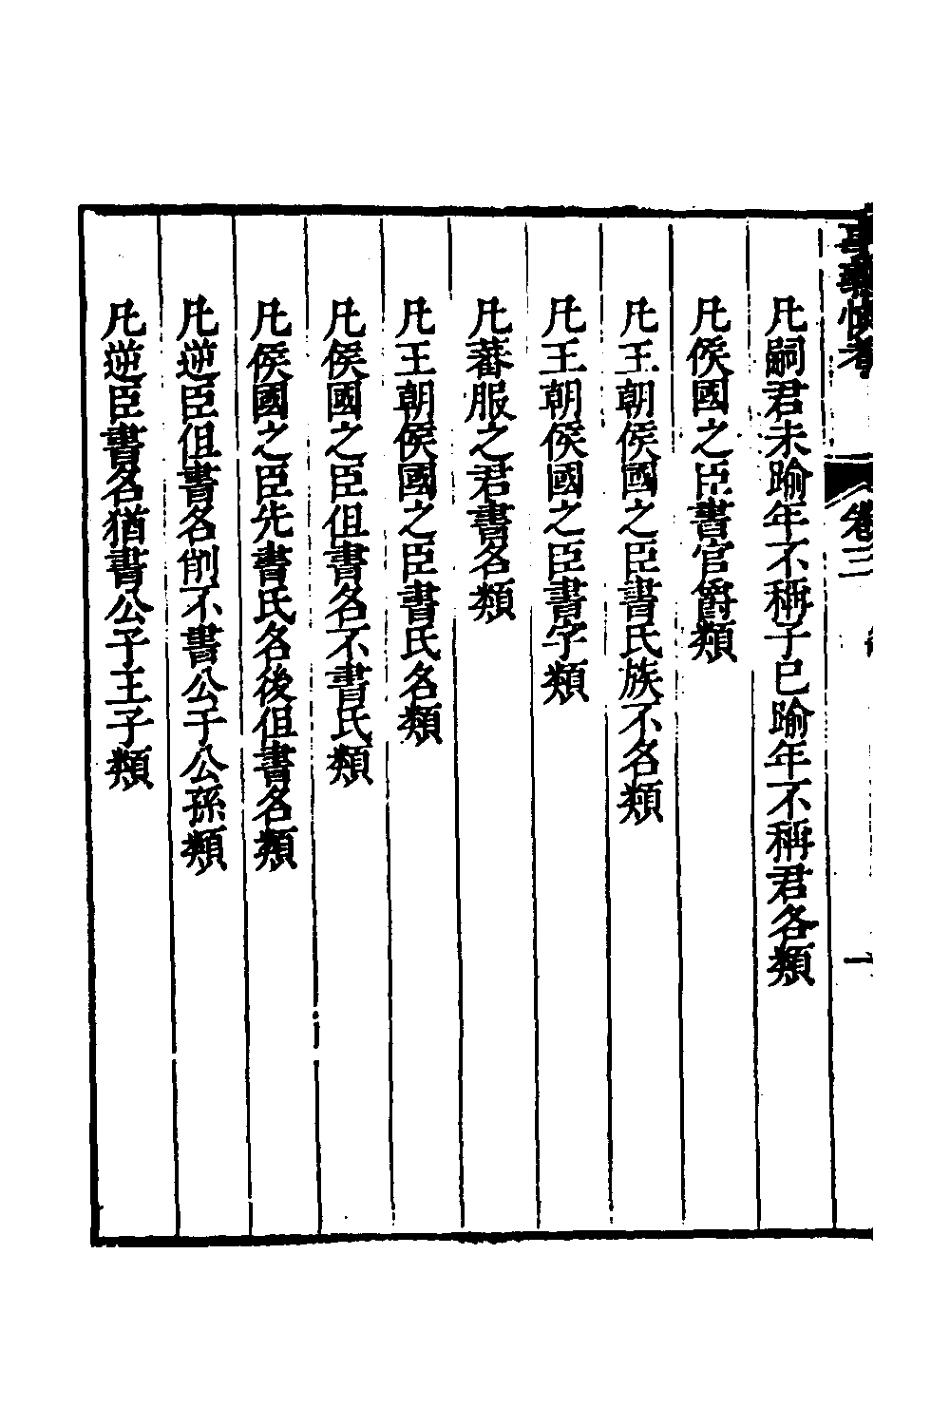 卷三
一
凡嗣君未踰年不稱子已踰年不稱君各類
凡侯國之臣書官爵類
凡王朝侯國之臣書氏族不名類
凡王朝侯國之臣書字類
凡蕃服之君書名類
凡王朝侯國之臣書氏名類
凡侯國之臣但書名不書氏類
凡侯國之臣先書氏名後但書名類
凡逆臣但書名削不書公子公孫類
凡逆臣書名猶書公子王子類